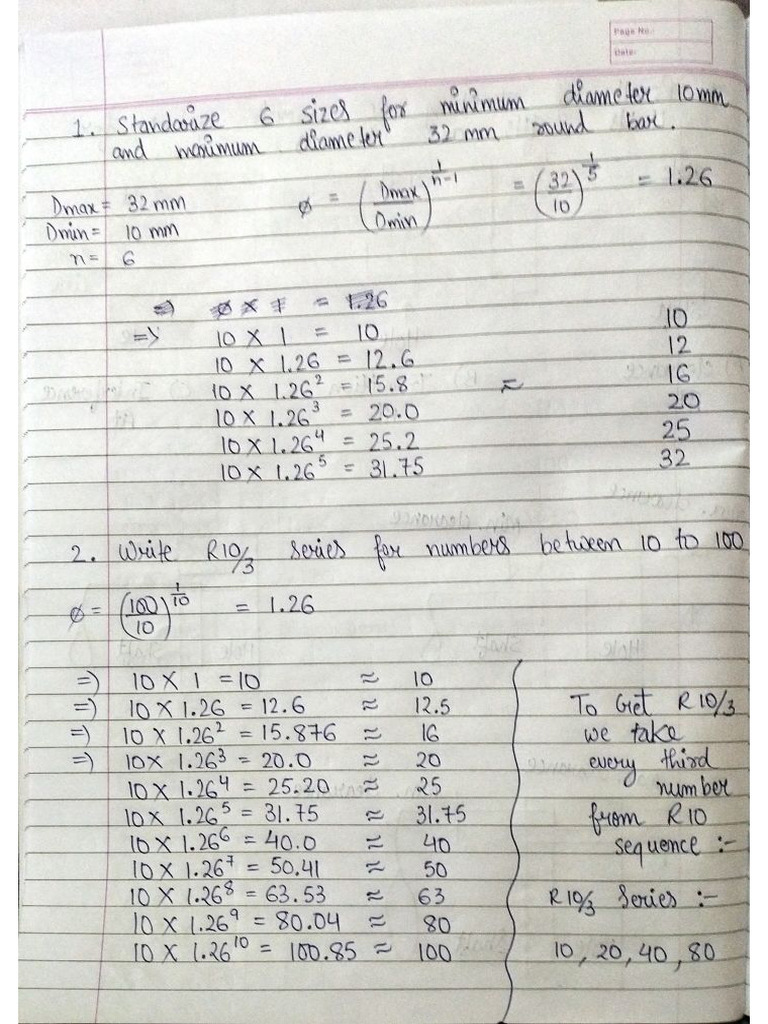 Page No.:
Date:
1. Standarize 6 sizes for minimum diameter 10mm
and maximum diameter 32 mm round bar.
Dmax = 32 mm
Dmin = 10 mm
n = 6
ø = (Dmax/Dmin)^(1/n-1) = (32/10)^(1/5) = 1.26
=> 10 X 1 = 10 10
10 X 1.26 = 12.6 12
10 X 1.26² = 15.8 ≈ 16
10 X 1.26³ = 20.0 20
10 X 1.26⁴ = 25.2 25
10 X 1.26⁵ = 31.75 32
2. Write R10/3 series for numbers between 10 to 100
ø = (100/10)^(1/10) = 1.26
=) 10 X 1 = 10 ≈ 10
=) 10 X 1.26 = 12.6 ≈ 12.5
=) 10 X 1.26² = 15.876 ≈ 16
=) 10X 1.26³ = 20.0 ≈ 20
10 X 1.26⁴ = 25.20 ≈ 25
10 X 1.26⁵ = 31.75 ≈ 31.75
10 X 1.26⁶ = 40.0 ≈ 40
10 X 1.26⁷ = 50.41 ≈ 50
10 X 1.26⁸ = 63.53 ≈ 63
10 X 1.26⁹ = 80.04 ≈ 80
10 X 1.26¹⁰ = 100.85 ≈ 100
To Get R10/3
we take
every third
number
from R10
sequence :-
R10/3 Series :-
10, 20, 40, 80